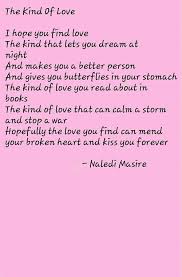 The Kind Of Love
I hope you find love
The kind that lets you dream at
night
And makes you a better person
And gives you butterflies in your stomach
The kind of love you read about in
books
The kind of love that can calm a storm
and stop a war
Hopefully the love you find can mend
your broken heart and kiss you forever
- Naledi Masire